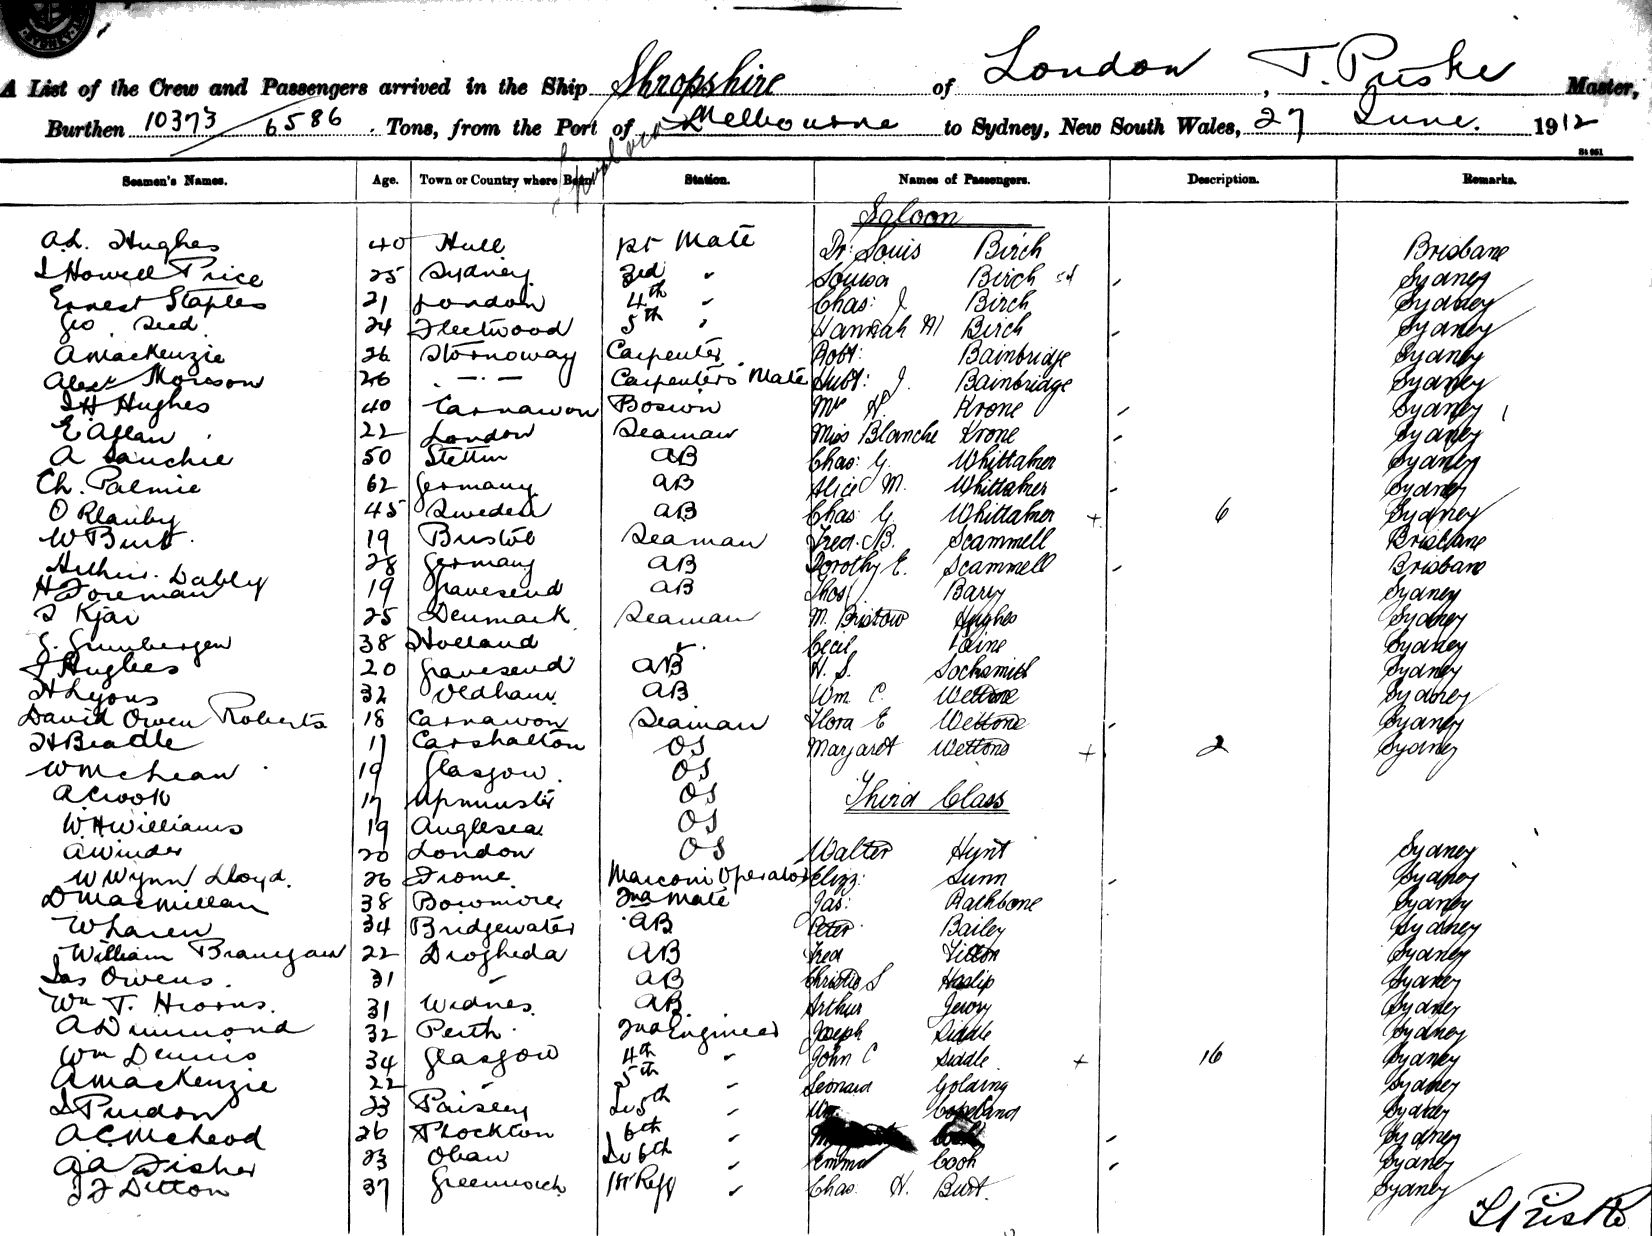 SYDNEY
A List of the Crew and Passengers arrived in the Ship Shropshire of London, T. Priske Master,
Burthen 10373 / 6586 Tons, from the Port of Melbourne to Sydney, New South Wales, 27 June. 1912
Seamen's Names. Age. Town or Country where Born. Station. Names of Passengers. Description. Remarks.
Saloon
A.L. Hughes 40 Hull 1st Mate Dr. Louis Birch Brisbane
I Howell Price 25 Sydney 3rd " Louisa Birch Sydney
Ernest Staples 21 London 4th " Chas: J Birch Sydney
Geo. Seed 24 Fleetwood 5th " Hannah M Birch Sydney
A Mackenzie 26 Stornoway Carpenter Robt: Bainbridge Sydney
Alex Morison 26 . — . — Carpenters Mate Hubt: J. Bainbridge Sydney
I H Hughes 40 Carnavon Bosun Mr H. Krone Sydney
E Allan 22 London Seaman Miss Blanche Krone Sydney
A Sauchie 50 Stettin AB Chas: G. Sydney
Ch. Palmie 62 Germany AB Alice M. Sydney
O 45 Sweden AB Chas G + 6 Sydney
W Burt 19 Bristol Seaman Fred. B. Scammell Brisbane
Dably 28 Germany AB Dorothy E. Scammell Brisbane
H Foreman 19 Gravesend AB Thos Barry Sydney
I Kjar 25 Denmark Seaman M. Bristow Hughes Sydney
38 Holland " Cecil Sydney
J Hughes 20 Gravesend AB H. S. Sydney
H Lyons 32 Oldham AB Wm. C. Wettone Sydney
David Owen Roberts 18 Carnavon Seaman Flora E Wettone Sydney
H Beadle 17 Carshalton OS Margaret Wettone + 2 Sydney
W McLean 19 Glasgow OS
A Crook 17 Upminster OS Third Class
W H Williams 19 Anglesea OS
A Winder 20 London OS Walter Hunt Sydney
W Wynn Lloyd. 26 Frome Marconi Operator Elizz: Sunn Sydney
D MacMillan 38 Bowmore 2nd Mate Jas: Rathbone Sydney
W 34 Bridgewater AB Peter Bailey Sydney
William Branigan 22 Drogheda AB Fred Sydney
Jas Owens. 31 " AB Christie S Haslip Sydney
Wm T. Hioons. 31 Widnes AB Arthur Sydney
A Dimmond 32 Perth 2nd Engineer Joseph Siddle Sydney
Wm Dennis 34 Glasgow 4th " John C Siddle + 16 Sydney
A Mackenzie 22 " 5th " Leonard Golding Sydney
I Purdon 23 Paisley Ju 5th " Wm Copeland Sydney
A C McLeod 26 Plockton 6th " Cook Sydney
A A Fisher 23 Oban Ju 6th " Emma Cook Sydney
J J Ditton 37 Greenwich 1st Refg " Chas H. Burt. Sydney
T Priske